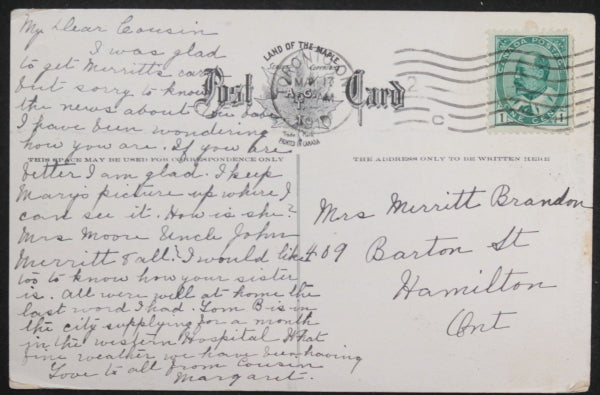 My Dear Cousin
I was glad
to get Merritts card
but sorry to know
the news about the babe
I have been wondering
how you are. If you are
better I am glad. I keep
Mary's picture up where I
can see it. How is she?
Mrs Moore Uncle John
Merritt & all? I would like
too to know how your sister
is. All were well at home the
last word I had. Tom B is in
the city supplying for a month
in the western Hospital What
fine weather we have been having
Love to all from Cousin
Margaret.
LAND OF THE MAPLE
Post Card
TORONTO, ONT
Trade Mark
PRINTED IN CANADA
THIS SPACE MAY BE USED FOR CORRESPONDENCE ONLY
THE ADDRESS ONLY TO BE WRITTEN HERE
CANADA POSTAGE
1 ONE CENT 1
Mrs Merritt Brandon
409 Barton St
Hamilton
Ont